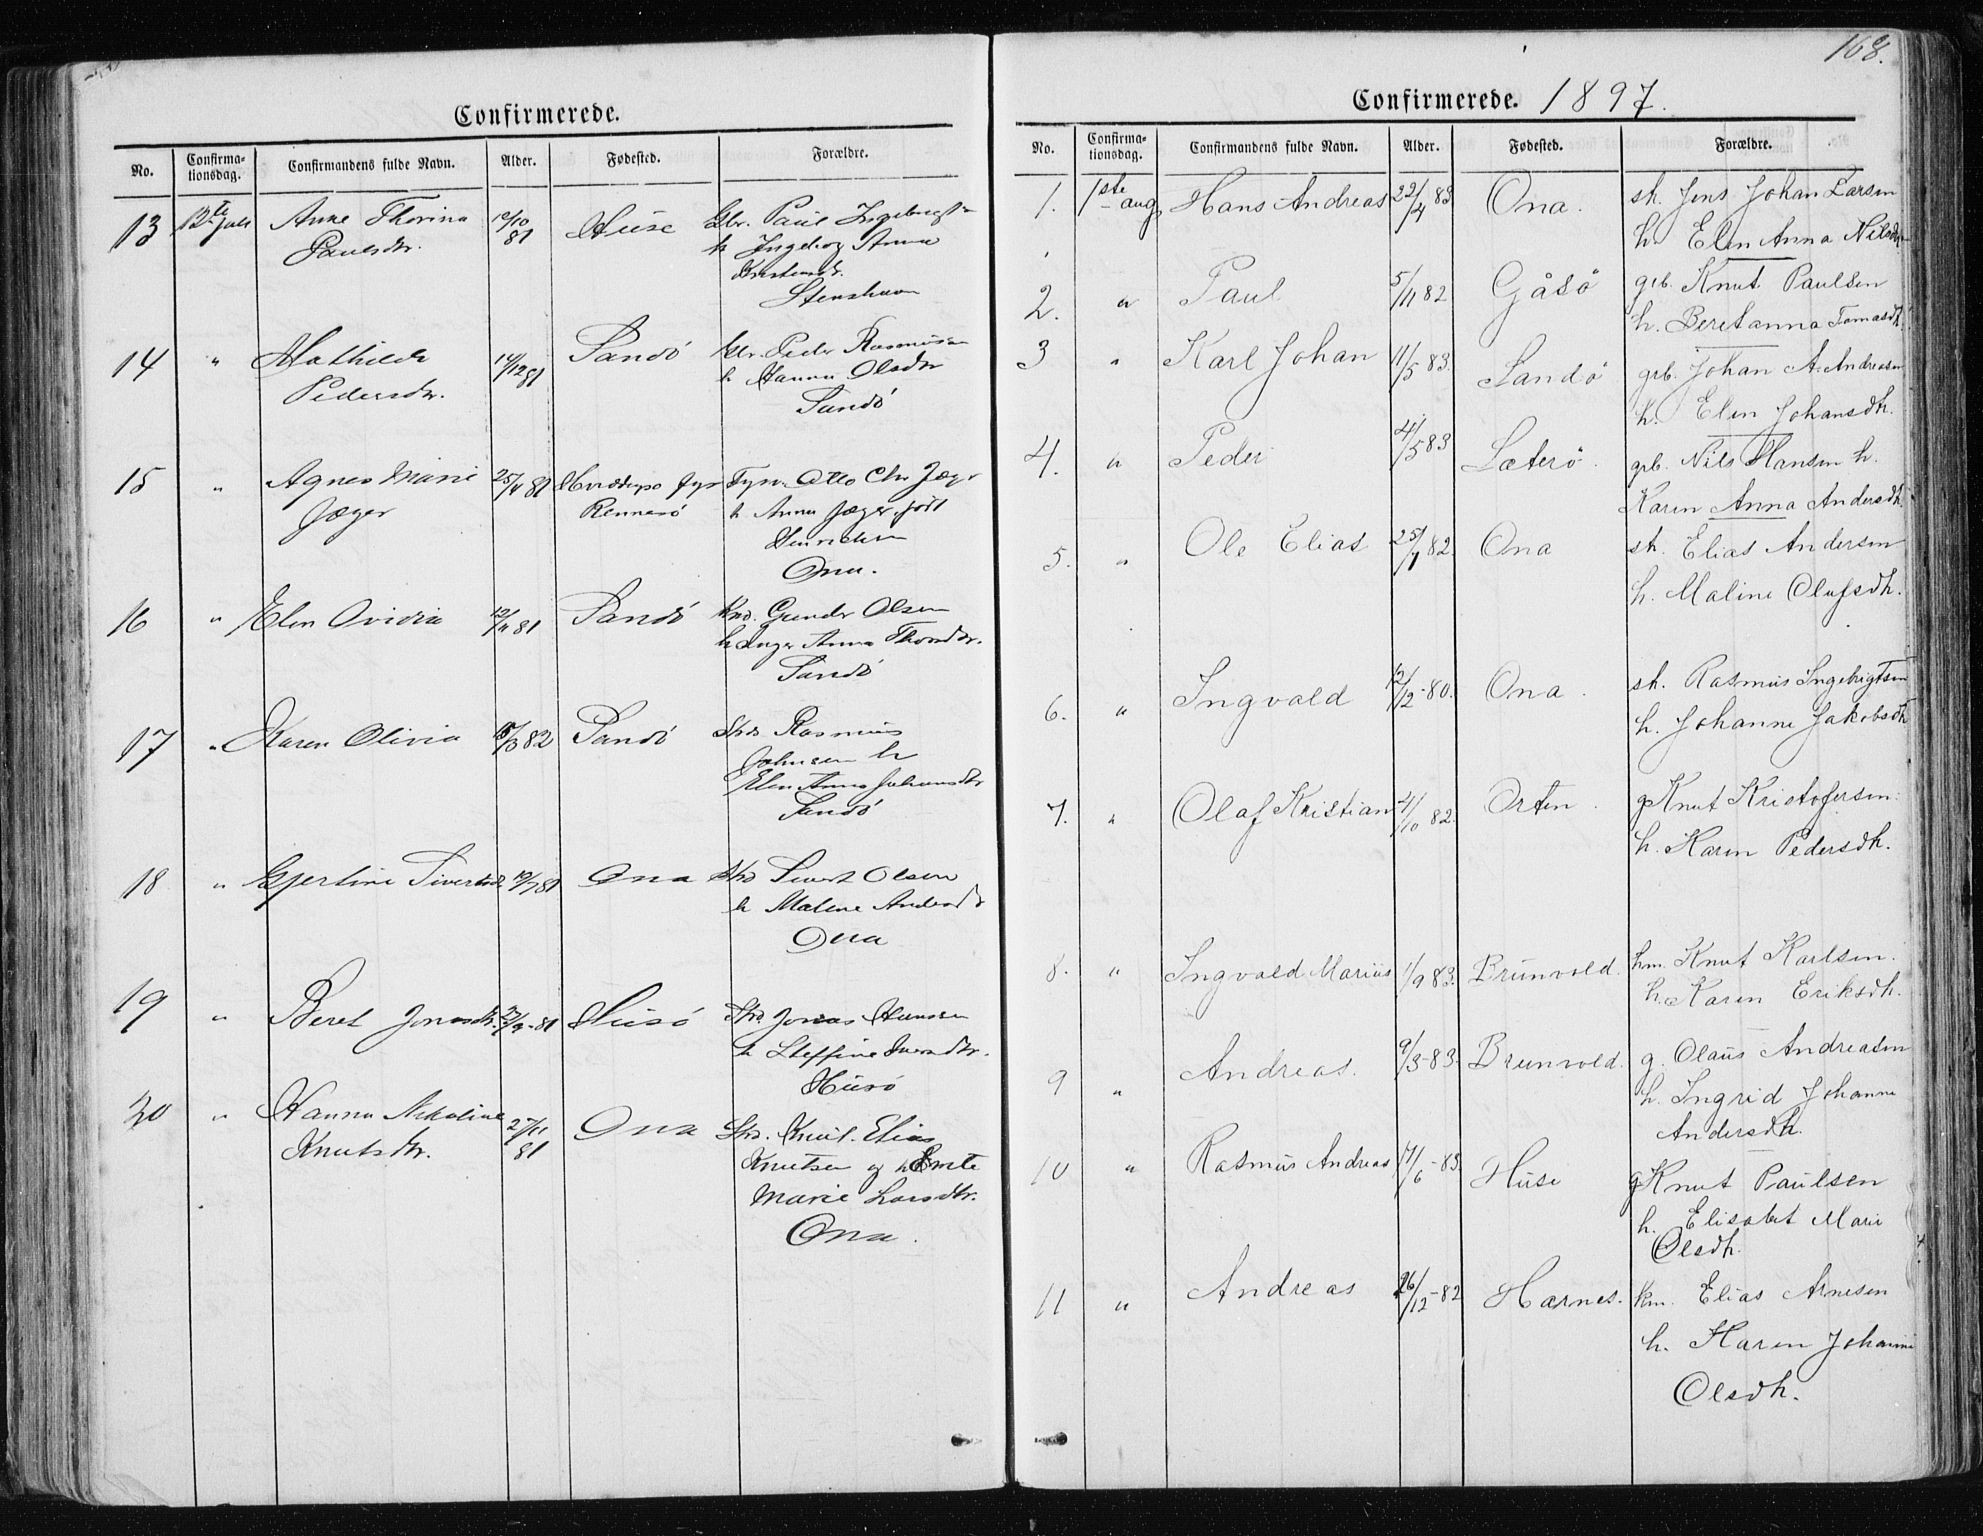 Confirmerede.
No. Confirma-tionsdag. Confirmandens fulde Navn. Alder. Fødested. Forældre.
13 12te Juli Anne Thorina 12/10 Huse Gbr. Paul Ingebrigtsn
Paulsdtr. 81 h Ingeborg Anna
Kristensdr.
Stenshavn
14 " Mathilde 14/12 81 Sandö Gbr. Peder Rasmussen
Pedersdtr. h Hanna Olsdtr
Sandö
15 " Agnes Marie 25/4 81 Fyr Fyrv. Otto Chr Jæger
Jæger Rennesö h Anna Jæger født
Henriksen
Ona.
16 " Elen Ovidia 12/11 81 Sandö Gunder Olsen
h Inger Anna
Sandö
17 " Karen Olivia 82 Sandö Rasmus
Johnsen h
Elen Anna Johansdtr
Sandö
18 " Gjertine Sivertsd. 19/7 81 Ona Sivert Olsen
h Maline Andersdtr
Ona
19 " Beret Jonasdtr. 81 Husö Jonas Hansen
h Steffine
Husö
20 " Hanna Nikoline 27/11 Ona Knut Elias
Knutsdtr. 81 Knutsen og h
Marie Larsdtr.
Ona.
168.
Confirmerede. 1897.
No. Confirma-tionsdag. Confirmandens fulde Navn. Alder. Fødested. Forældre.
1. 1ste aug Hans Andreas 22/4 83 Ona. st. Jens Johan Larsen
h. Elen Anna Nilsdtr
2. " Paul 5/11 82 Gåsö grb. Knut Paulsen
h. Beret anna Tomasdt.
3 " Karl Johan 11/5 83. Sandö grb. Johan A. Andreasen
h. Elen Johansdt.
4. " Peder 4/5 83 Sæterö. grb. Nils Hansen h.
Karen Anna Andersdt.
5. " Ole Elias 25/1 82. Ona st. Elias Andersen
h. Maline Olufsdt.
6. " Ingvald 12/12-80. Ona. st. Rasmus Ingebrigtsen
h. Johanne Jakobsdt
7. " Olaf Kristian 4/10 82. Orten. g Knut Kristofersen.
h. Karen Pedersdt.
8. " Ingvald Marius 1/9 83. Brunvold. hm. Knut Karlsen.
h. Karen Eriksdt.
9 " Andreas. 9/3-83. Brunvold. g. Olaus Andreasen
h. Ingrid Johanne
Andersdt.
10 " Rasmus Andreas 17/6-83. Huse g Knut Paulsen
h. Elisabet Marie
Olsdt.
11 " Andreas 26/12-82 Harnes. km. Elias Arnesen
h. Karen Johanne
Olsdt.